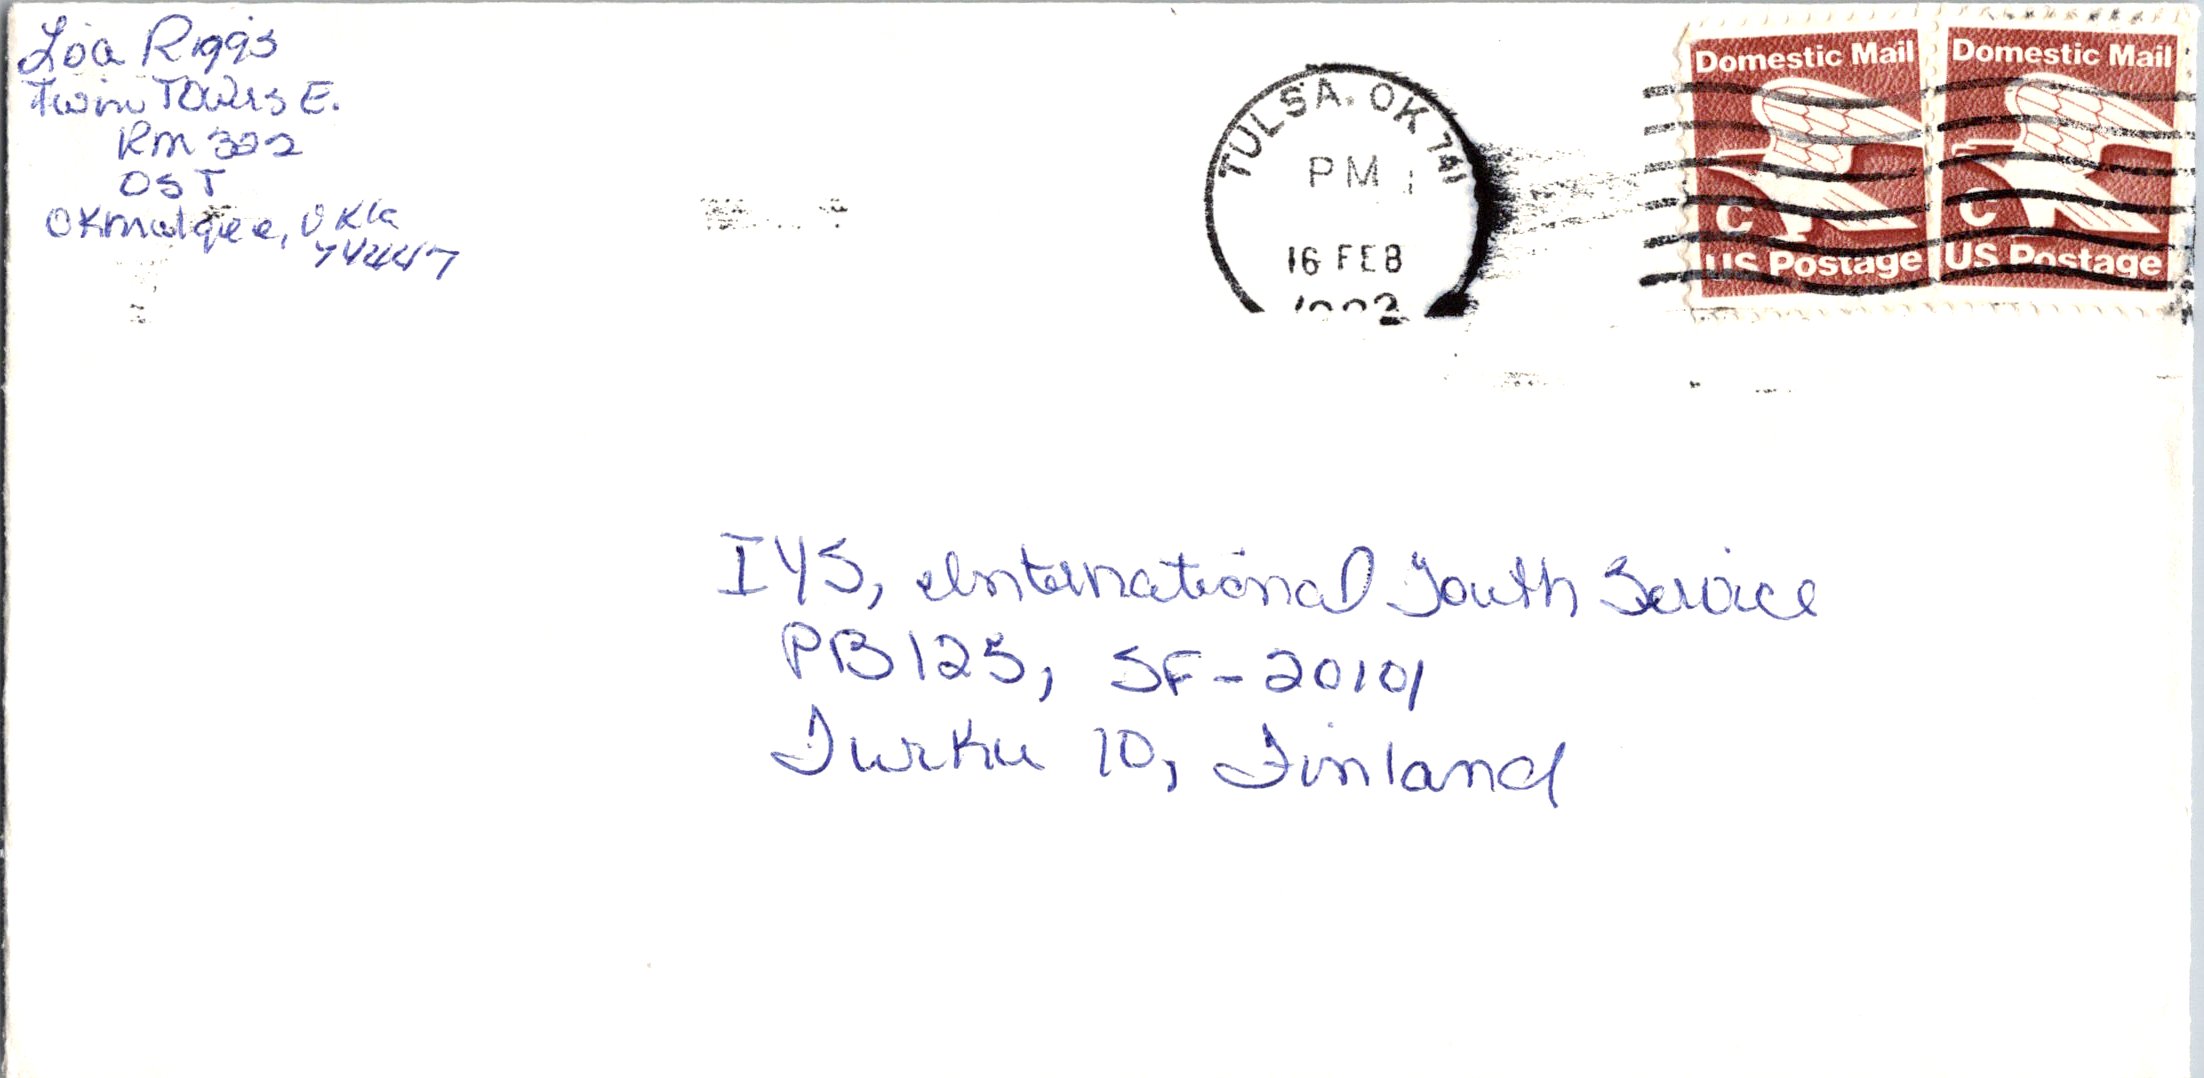 Loa Riggs
Twin Towers E.
RM 322
OST
OKmulgee, Okla
74447
TULSA, OK 741
PM
16 FEB
Domestic Mail
C
US Postage
Domestic Mail
C
US Postage
IYS, International Youth Service
PB 125, SF-20101
Turku 10, Finland